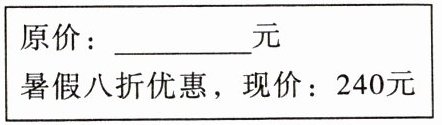 原价：__________元
暑假八折优惠，现价：240元